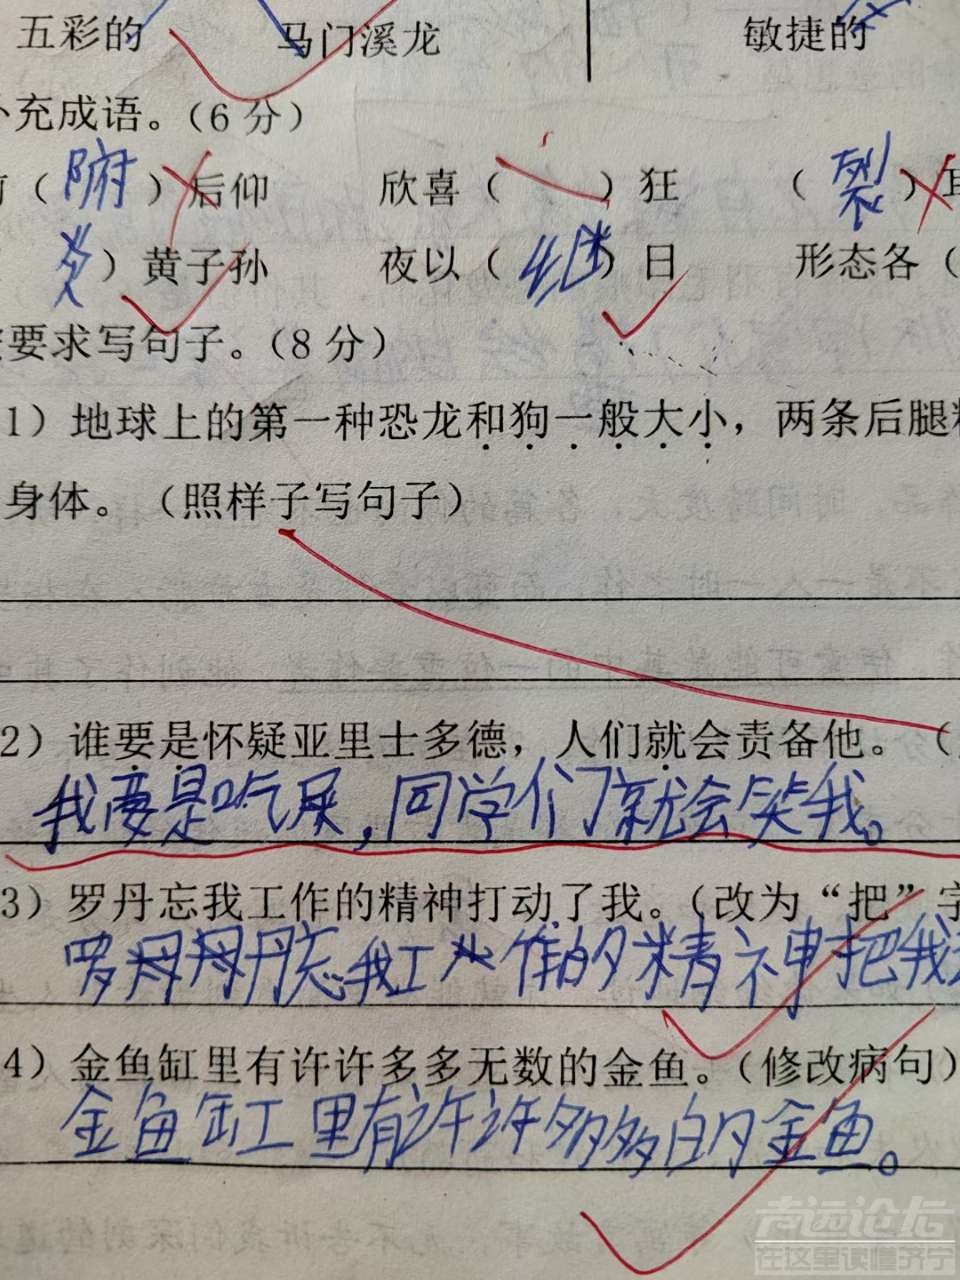 五彩的 马门溪龙 敏捷的
补充成语。(6分)
前（腑）后仰 欣喜（ ）狂 （裂）耳
炎）黄子孙 夜以（继）日 形态各（
按要求写句子。(8分)
1）地球上的第一种恐龙和狗一般大小，两条后腿
身体。（照样子写句子）
2）谁要是怀疑亚里士多德，人们就会责备他。（
我要是吃屎，同学们就会笑我。
3）罗丹忘我工作的精神打动了我。（改为“把”字
罗丹忘我工作的精神把我
4）金鱼缸里有许许多多无数的金鱼。（修改病句）
金鱼缸里有许许多多的金鱼。
在这里读懂济宁